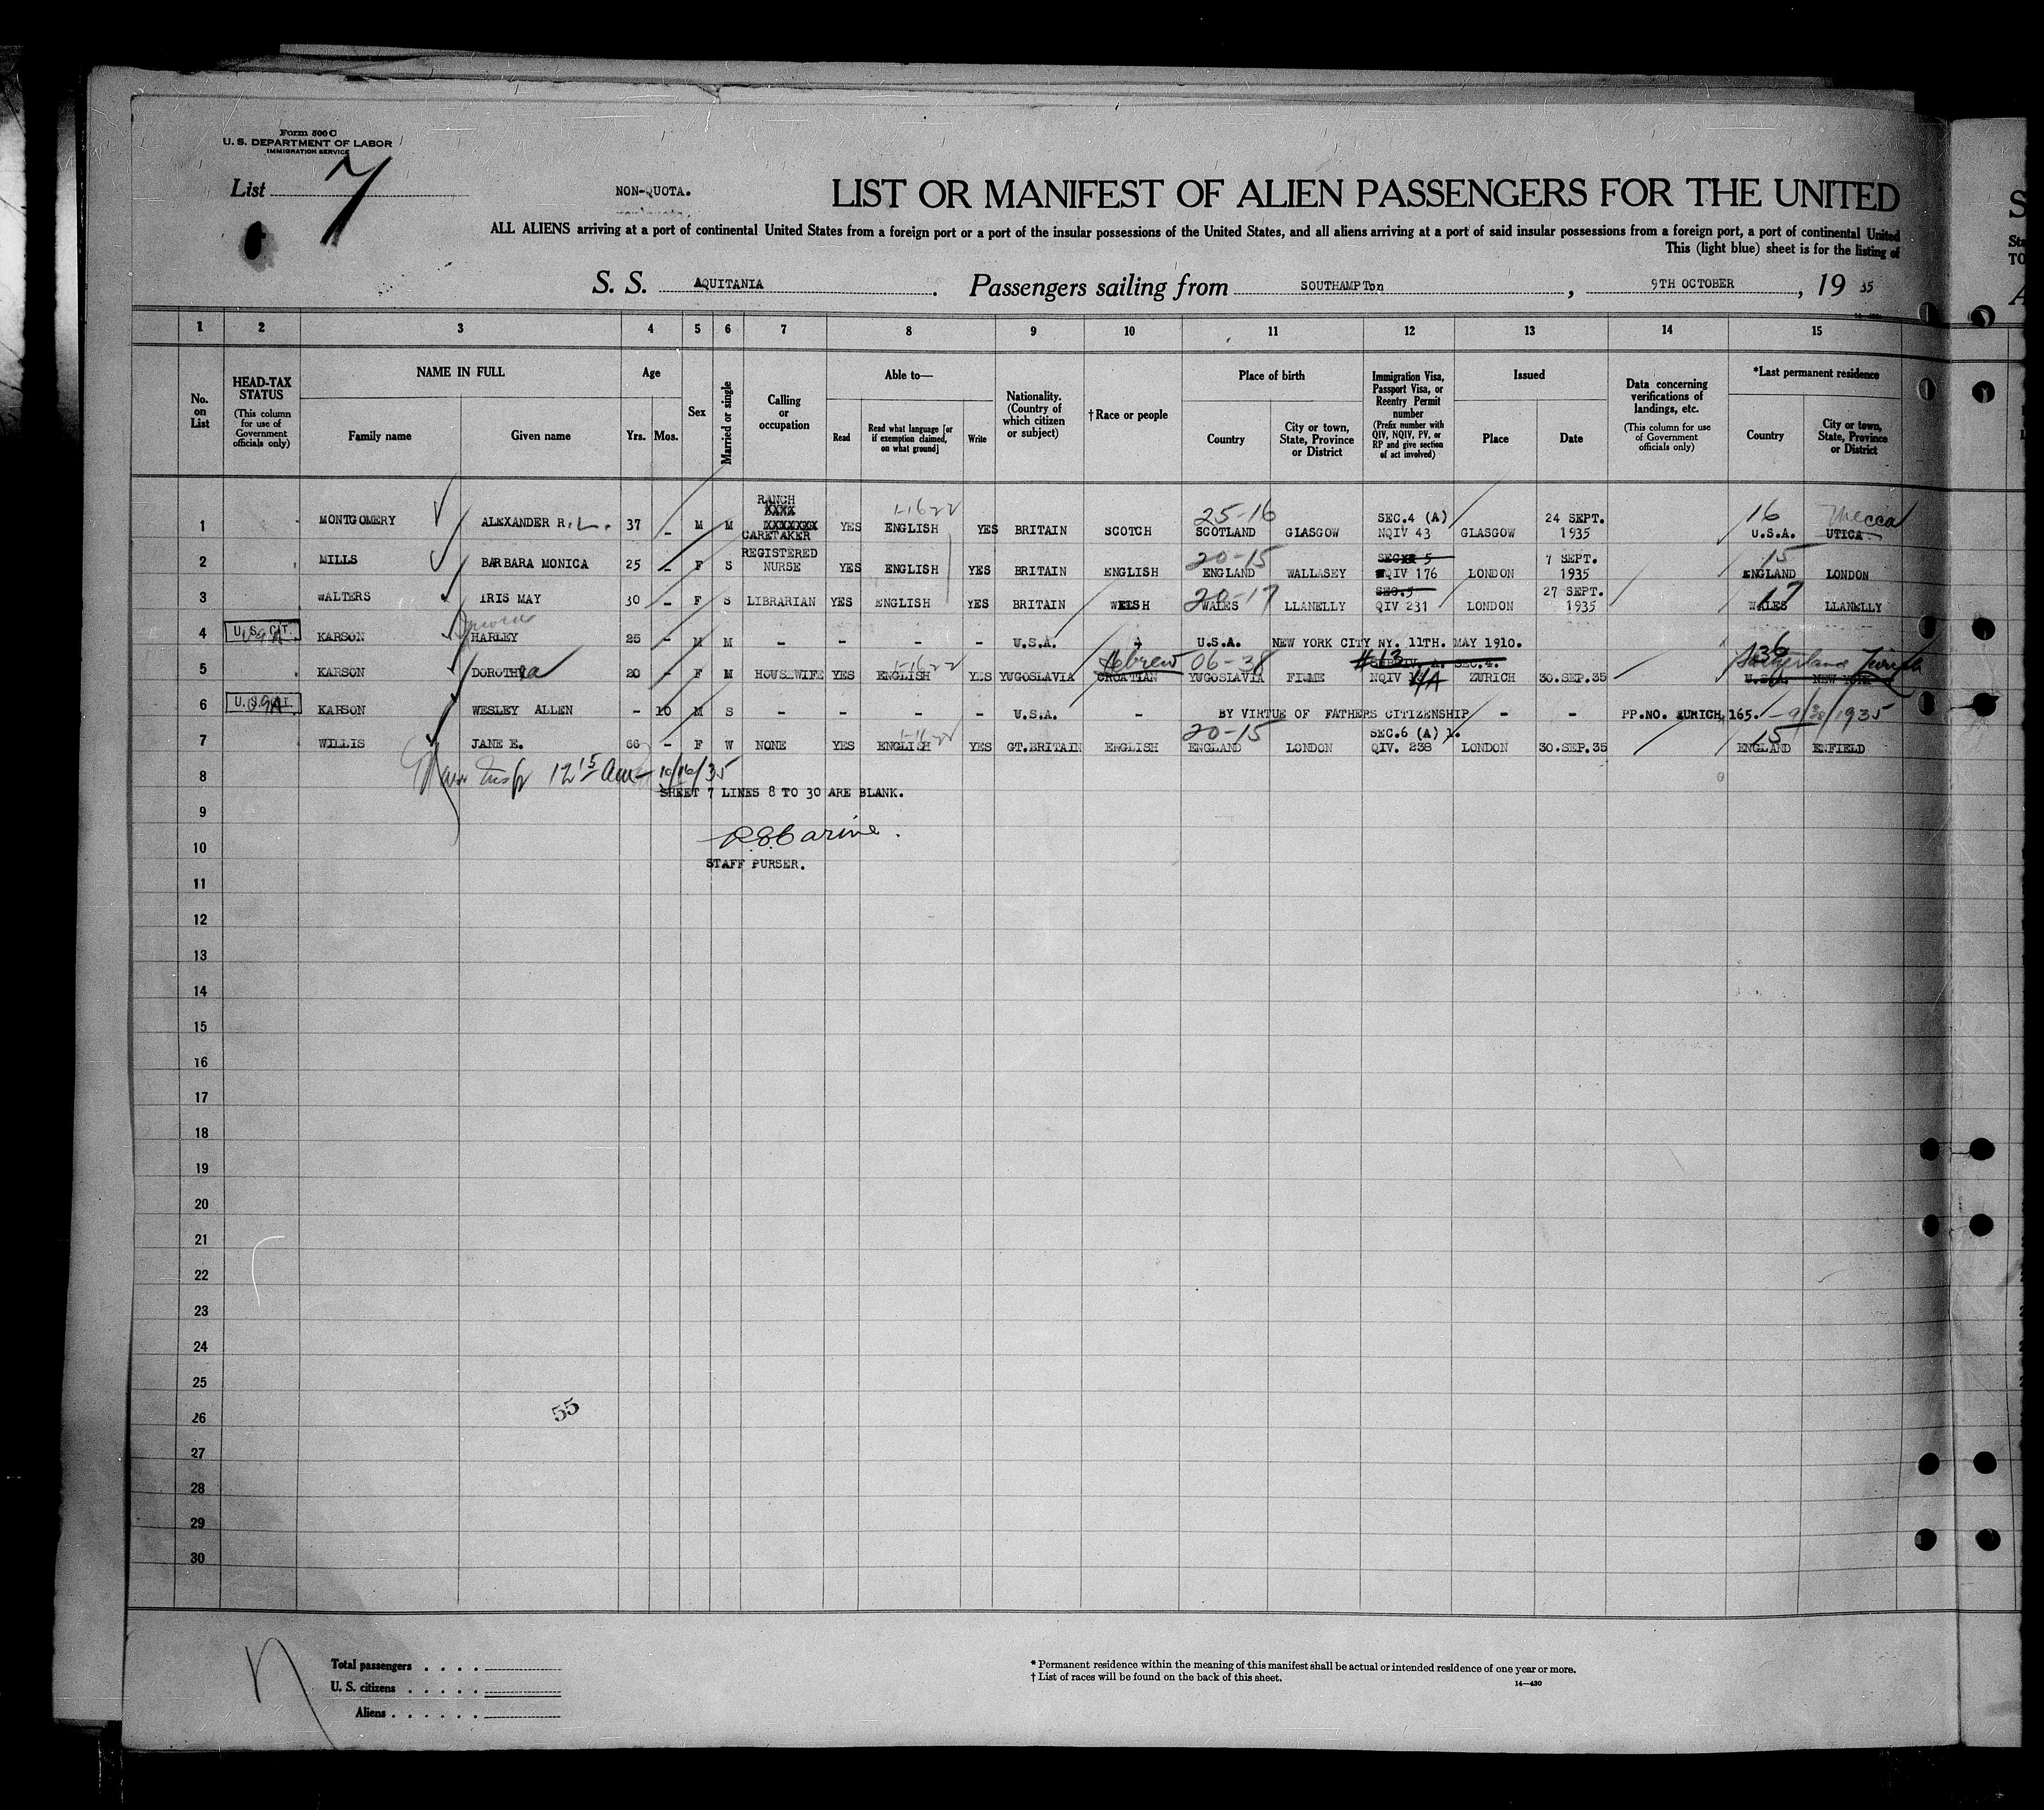 Form 500 C
U. S. DEPARTMENT OF LABOR
IMMIGRATION SERVICE
List 7
NON-QUOTA.
LIST OR MANIFEST OF ALIEN PASSENGERS FOR THE UNITED
ALL ALIENS arriving at a port of continental United States from a foreign port or a port of the insular possessions of the United States, and all aliens arriving at a port of said insular possessions from a foreign port, a port of continental United
This (light blue) sheet is for the listing of
S. S. AQUITANIA. Passengers sailing from SOUTHAMPTon, 9TH OCTOBER, 19 35
1 2 3 4 5 6 7 8 9 10 11 12 13 14 15
No. on List
HEAD-TAX STATUS (This column for use of Government officials only)
NAME IN FULL Family name Given name
Age Yrs. Mos.
Sex
Married or single
Calling or occupation
Able to— Read Read what language [or if exemption claimed, on what ground] Write
Nationality. (Country of which citizen or subject)
†Race or people
Place of birth Country City or town, State, Province or District
Immigration Visa, Passport Visa, or Reentry Permit number (Prefix number with QIV, NQIV, PV, or RP and give section of act involved)
Issued Place Date
Data concerning verifications of landings, etc. (This column for use of Government officials only)
*Last permanent residence Country City or town, State, Province or District
RANCH 1-1622 25-16 SEC.4 (A) 24 SEPT. 16 Mecca
XXXX
1 MONTGOMERY ALEXANDER R. L. 37 - M M XXXXXXX YES ENGLISH YES BRITAIN SCOTCH SCOTLAND GLASGOW NQIV 43 GLASGOW 1935 U.S.A. UTICA
CARETAKER
REGISTERED 20-15 SEC 5 7 SEPT. 15
2 MILLS BARBARA MONICA 25 - F S NURSE YES ENGLISH YES BRITAIN ENGLISH ENGLAND WALLASEY QIV 176 LONDON 1935 ENGLAND LONDON
20-17 SEC.5 27 SEPT. 17
3 WALTERS IRIS MAY 30 - F S LIBRARIAN YES ENGLISH YES BRITAIN WELSH WALES LLANELLY QIV 231 LONDON 1935 WALES LLANELLY
4 U.S. CIT. KARSON HARLEY 25 - M M - - - - U.S.A. - U.S.A. NEW YORK CITY NY. 11TH. MAY 1910.
1-1622 Hebrew 06-38 #13 SEC.4. 36 Switzerland Zurich
5 KARSON DOROTHea 20 - F M HOUSEWIFE YES ENGLISH YES YUGOSLAVIA CROATIAN YUGOSLAVIA FIUME NQIV 4A ZURICH 30.SEP.35 U.S.A. NEW YORK
6 KARSON WESLEY ALLEN - 10 M S - - - - U.S.A. - BY VIRTUE OF FATHERS CITIZENSHIP - - PP.NO. ZURICH, 165. - 9/30/1935
1-1622 20-15 SEC.6 (A) 1. 15
7 WILLIS JANE E. 66 - F W NONE YES ENGLISH YES GT.BRITAIN ENGLISH ENGLAND LONDON QIV. 238 LONDON 30.SEP.35 ENGLAND ENFIELD
8 12 15 am - 10/16/35
SHEET 7 LINES 8 TO 30 ARE BLANK.
9
10
STAFF PURSER.
11
12
13
14
15
16
17
18
19
20
21
22
23
24
25
26 55
27
28
29
30
Total passengers . . . .
U. S. citizens . . . . .
Aliens . . . . . .
* Permanent residence within the meaning of this manifest shall be actual or intended residence of one year or more.
† List of races will be found on the back of this sheet.
14—430